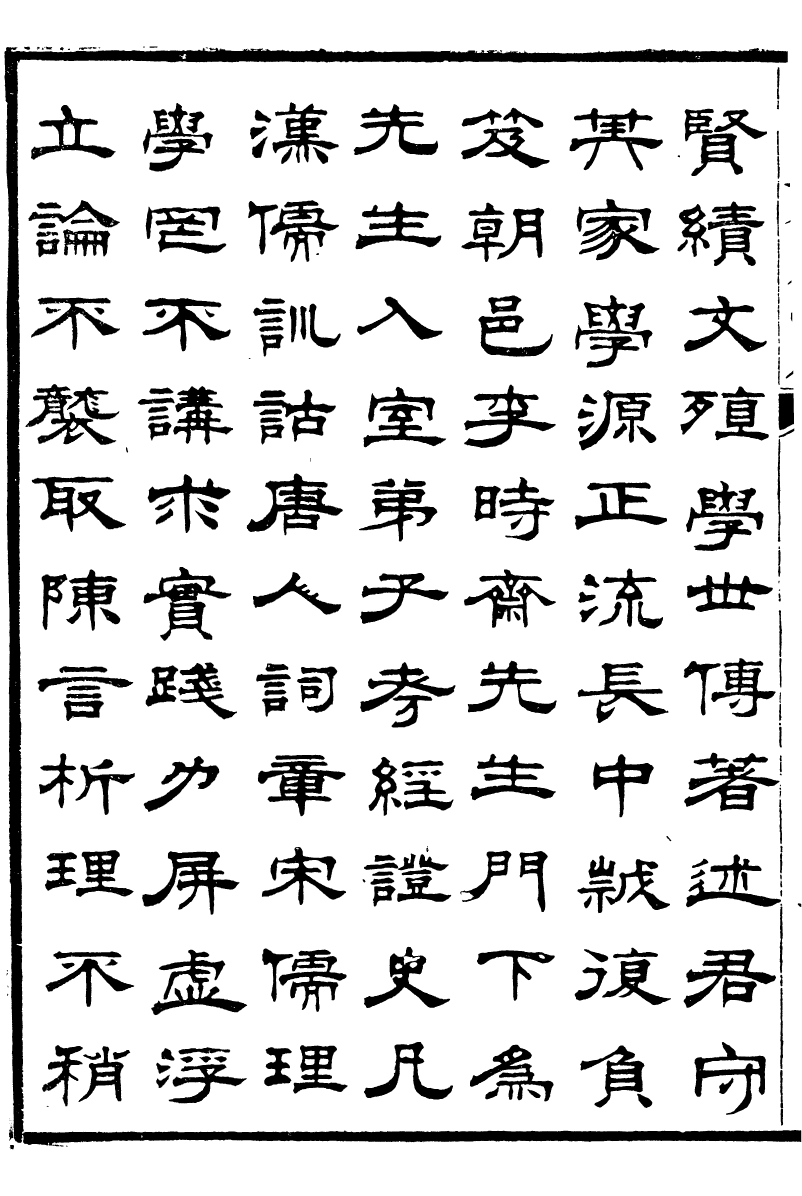 賢績文殖學世傳著述君守
其家學源正流長中歲復負
笈朝邑李時齋先生門下為
先生入室弟子考經證史凡
漢儒訓詁唐人詞章宋儒理
學罔不講求實踐力屏虛浮
立論不襲取陳言析理不稍